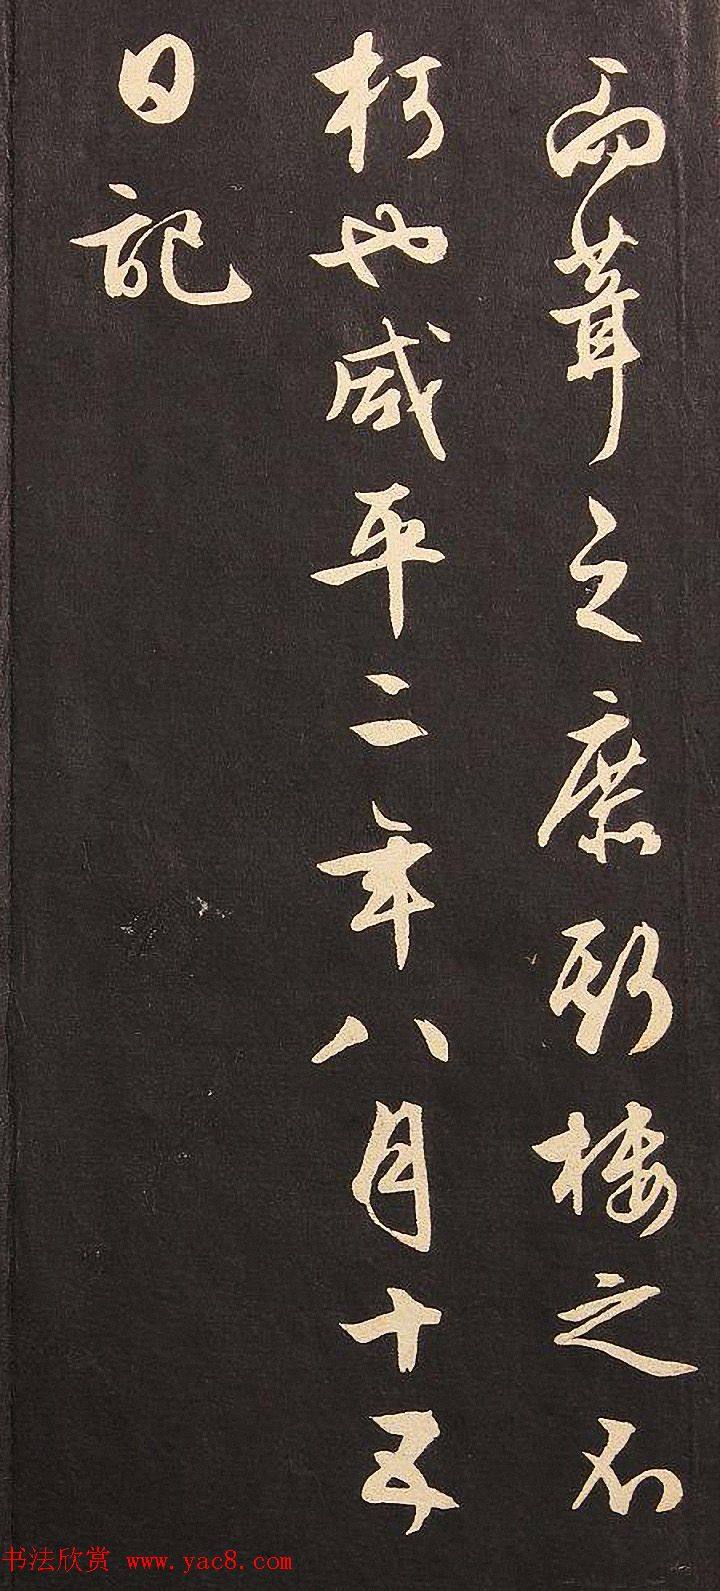 而葺之庶斯楼之不
朽也咸平二年八月十五
日記
书法欣赏 www.yac8.com